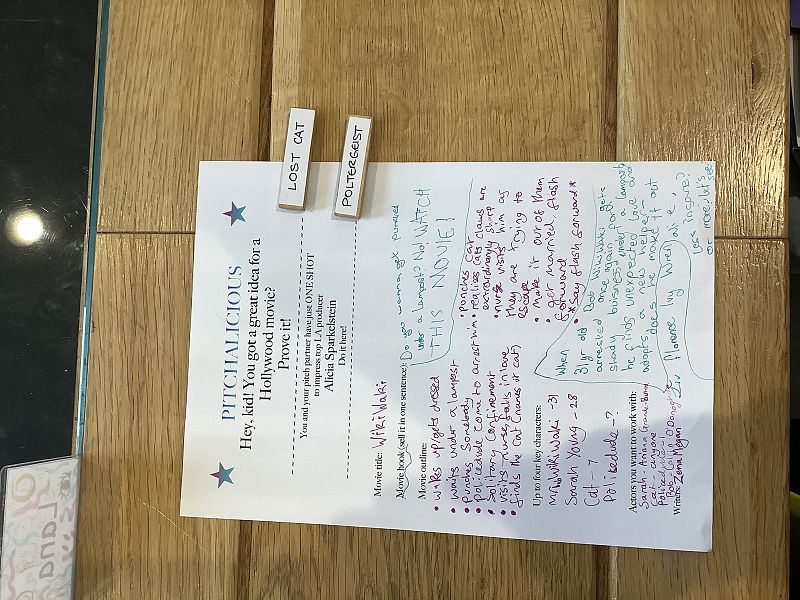 PITCHALICIOUS
Hey, kid! You got a great idea for a
Hollywood movie?
Prove it!
You and your pitch partner have just ONE SHOT
to impress top LA producer
Alicia Sparkelstein
Do it here!
LOST CAT
POLTERGEIST
Movie title: WikiWaki
Movie hook (sell it in one sentence): Do you wanna get
under a lampost? No! WATCH
THIS MOVIE!
Movie outline:
• wakes up/gets dressed
• waits under a lampost
• punches Somebody
• Policedude come to arrest him
• Solitary Confinement
• visits nurse, falls in love
• finds the Cat (names it cat)
• punches cat
• realizes cats claws are
extraordinarily sharp
• nurse visits him as
they are trying to
escape
• make it out of there
• get married, flash
forward
*Say flash forward*
Up to four key characters:
Mr WikiWaki - 31
Sarah Young - 28
Cat - ?
Policedude - ?
When
31yr old Bob WikiWaki gets
arrested once again for
shady business under a lampost,
he finds unexpected love and
a new expert
does he make it out
or more! let's see!
Actors you want to work with:
Sarah - Ariana Grande
Cat - anyone
Writers: Zena Megan
Liv Florence Ivy Wren